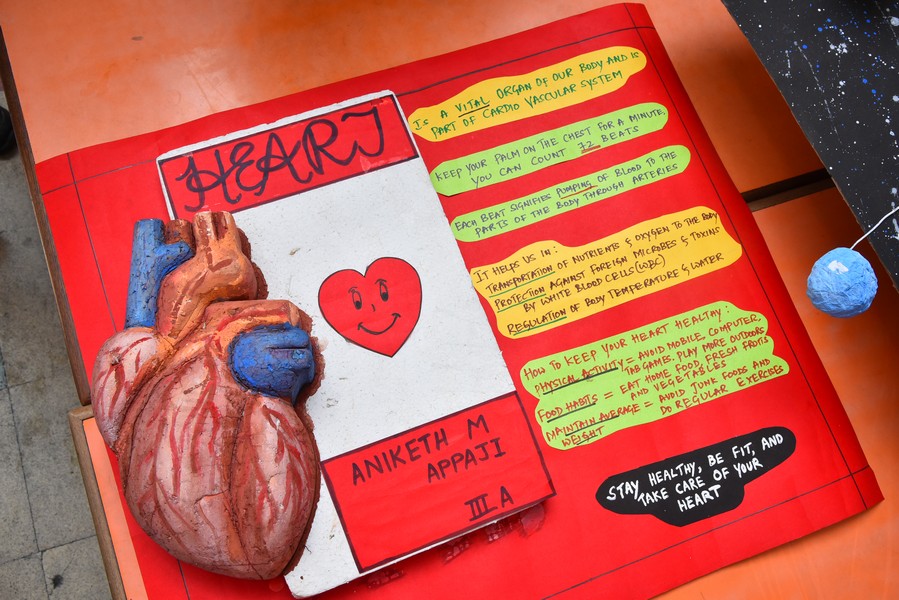 HEART
ANIKETH M
APPAJI
III A
IS A VITAL ORGAN OF OUR BODY AND IS
PART OF CARDIO VASCULAR SYSTEM
KEEP YOUR PALM ON THE CHEST FOR A MINUTE,
YOU CAN COUNT 72 BEATS
EACH BEAT SIGNIFIES PUMPING OF BLOOD TO THE
PARTS OF THE BODY THROUGH ARTERIES
IT HELPS US IN:
TRANSPORTATION OF NUTRIENTS & OXYGEN TO THE BODY
PROTECTION AGAINST FOREIGN MICROBES & TOXINS
BY WHITE BLOOD CELLS (WBC)
REGULATION OF BODY TEMPERATURE & WATER
HOW TO KEEP YOUR HEART HEALTHY:
PHYSICAL ACTIVITY = AVOID MOBILE, COMPUTER,
TAB GAMES. PLAY MORE OUTDOORS
FOOD HABITS = EAT HOME FOOD, FRESH FRUITS
AND VEGETABLES
MAINTAIN AVERAGE = AVOID JUNE FOODS AND
WEIGHT DO REGULAR EXERCISES
STAY HEALTHY, BE FIT, AND
TAKE CARE OF YOUR
HEART